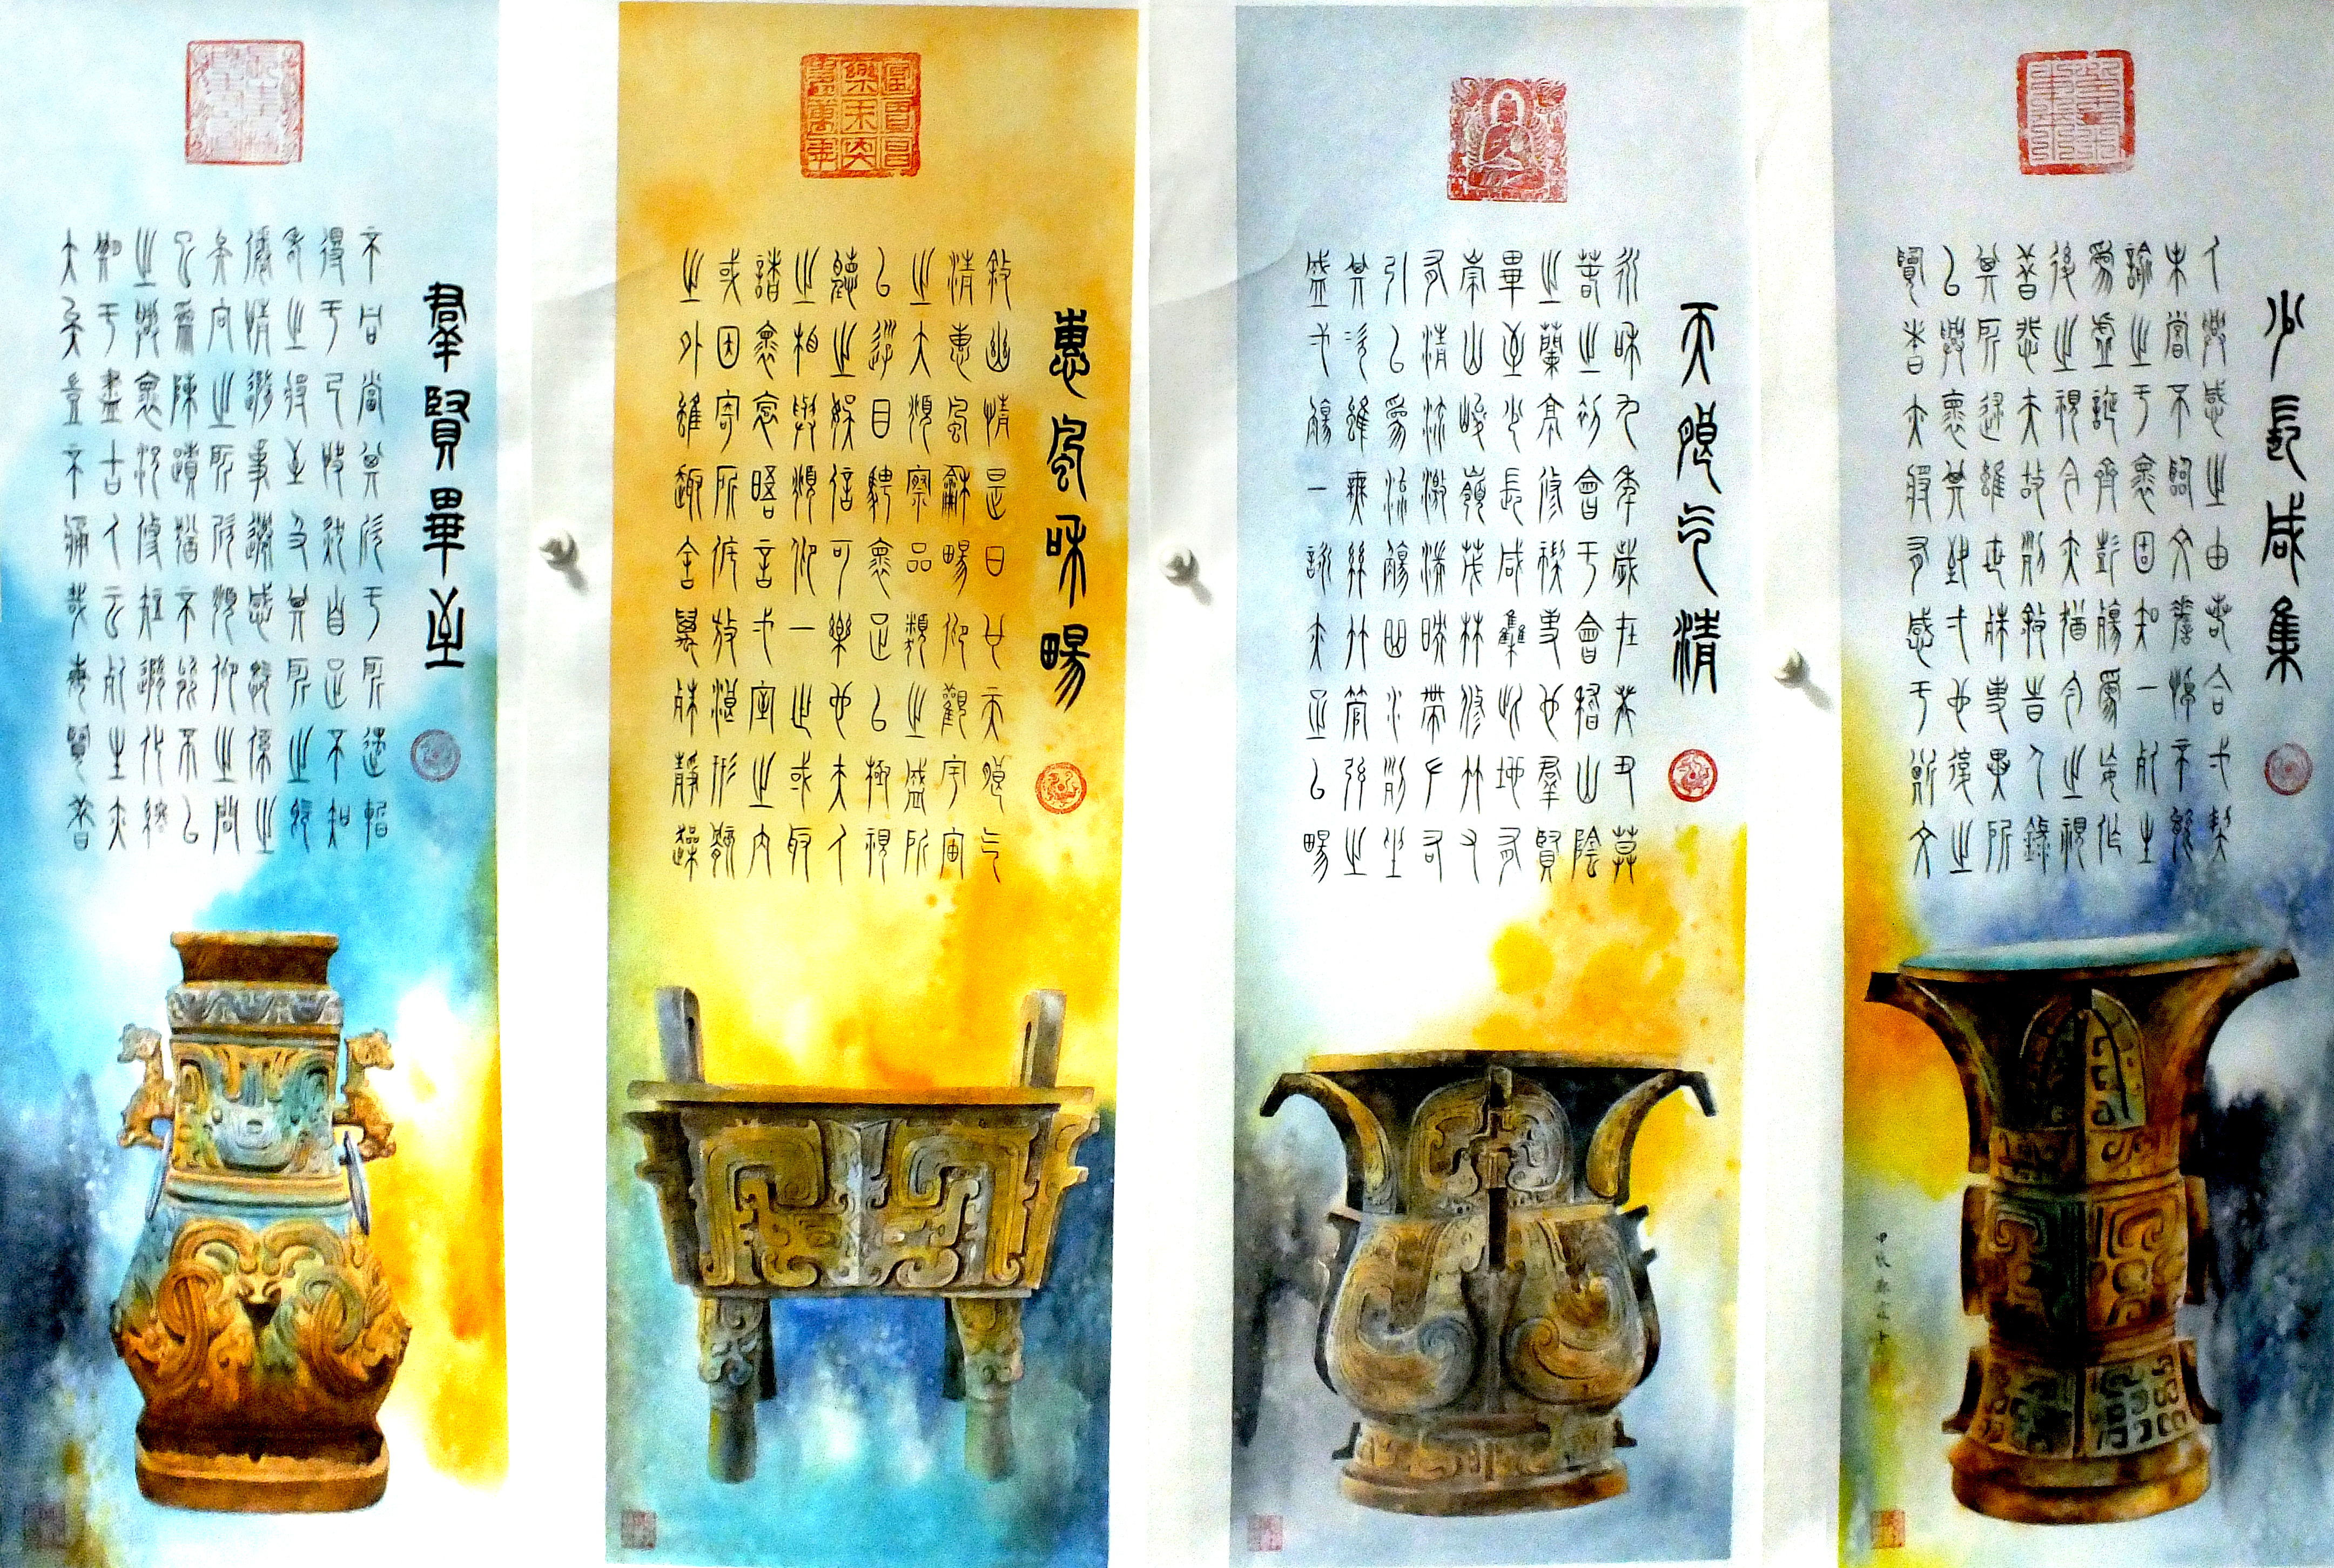 天朗气清
永和九年歲在癸丑莫
春之初會于會稽山陰
之蘭亭修禊事也群賢
畢至少長咸集此地有
崇山峻嶺茂林修竹又
有清流激湍映帶左右
引以為流觴曲水列坐
其次雖無絲竹管弦之
盛一觴一詠亦足以暢
惠風和暢
敘幽情是日也天朗气
清惠風和暢仰觀宇宙
之大俯察品類之盛所
以遊目騁懷足以極視
聽之娛信可樂也夫人
之相與俯仰一世或取
諸懷抱晤言一室之內
或因寄所託放浪形骸
之外雖趣舍萬殊靜躁
群賢畢至
不同當其欣于所遇暫
得于己快然自足不知
老之將至及其所之既
倦情隨事遷感慨係之
矣向之所欣俯仰之間
已為陳跡猶不能不以
之興懷況修短隨化終
期于盡古人云死生亦
大矣豈不痛哉每覽昔
少長咸集
人興感之由若合一契
未嘗不臨文嗟悼不能
喻之于懷固知一死生
為虛誕齊彭殤為妄作
後之視今亦猶今之視
昔悲夫故列敘時人錄
其所述雖世殊事異所
以興懷其致一也後之
覽者亦將有感于斯文